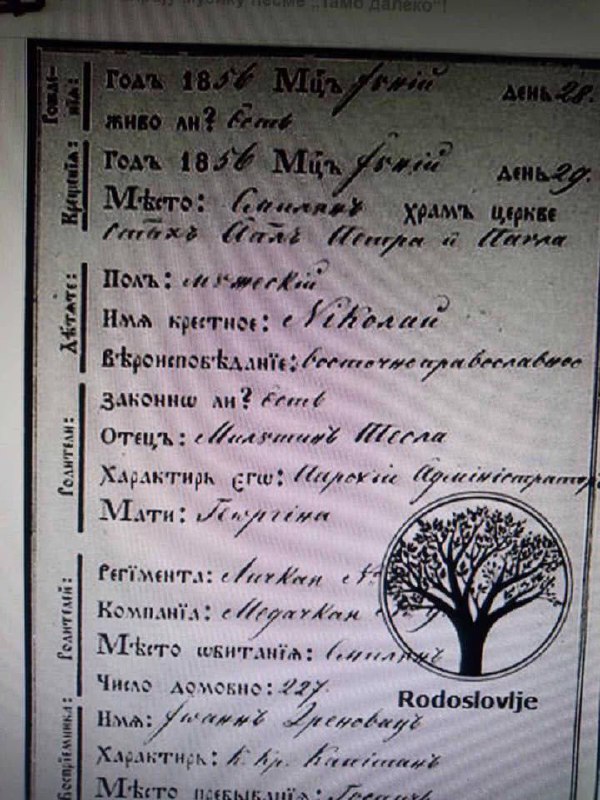 музику песме „Тамо далеко“!
Рожде-
нїѧ:
Годъ 1856 Мц҃ъ Јунїй день 28.
живо ли? Есть
Крещенїѧ:
Годъ 1856 Мц҃ъ Јунїй день 29.
Мѣсто: Смилянъ храмъ церкве
Стыхъ Апл Петра и Павла
Дѣтѧте:
Полъ: мужескїй
Имѧ крестное: Николай
Вѣроисповѣданїе: восточноправославное
Родители:
Законнѡ ли? Есть
Отецъ: Милутинъ Тесла
Характиръ єгѡ: Парохїе Админїстраторъ
Мати: Геѡргїна
Родителей:
Регїмента: Личкан
Компанїѧ: Медачкан
Мѣсто ѡбитанїѧ: Смилянъ
Число домовно: 227.
Rodoslovlje
Воспрїемника:
Имѧ: Јоаннъ Дреновацъ
Характиръ: К. Кр. Капїтанъ
Мѣсто пребыванїѧ: Госпичъ